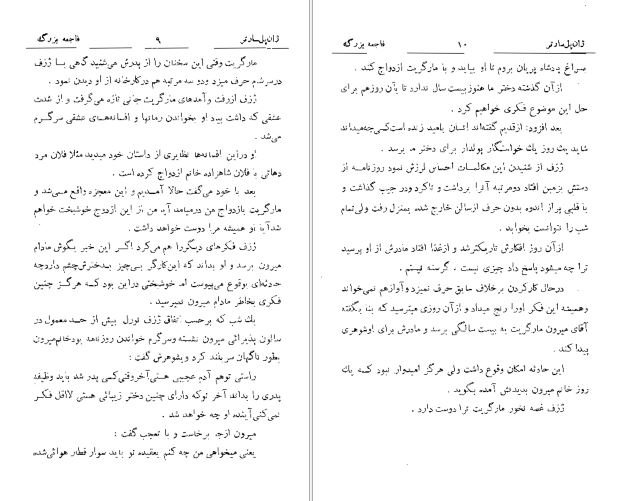 ژان‌پل‌سارتر ۹ فاجعه بزرگ
مارگریت وقتی این سخنان را از پدرش می‌شنید گاهی با ژزف
درسرشام حرف میزد ودو سه مرتبه هم درکارخانه از او دیدن نمود.
ژزف ازرفت و آمدهای مارگریت جانی تازه می‌گرفت و از شدت
عشقی که داشت بیاد او بخواندن رمانها و افسانه‌های عشقی سرگرم
می‌شد.
او دراین افسانه‌ها نظایری از داستان خود میدید مثلا فلان مرد
دهاتی با فلان شاهزاده خانم ازدواج کرده است.
بعد با خود می‌گفت حالا آمدیم و این معجزه واقع می‌شد و
مارگریت بازدواج من درمیامد آیا من از این ازدواج خوشبخت خواهم
شدآیا او همیشه مرا دوست خواهد داشت.
ژزف فکرهای دیگررا هم می‌کرد اگر این خبر بگوش مادام
میرون برسد و او بداند که این‌کارگر بی‌چیز بدخترش‌چشم داردچه
حادثه‌ای بوقوع می‌پیوست اما خوشبختی دراین بود کمه هرگز چنین
فکری بخاطر مادام میرون نمیرسید.
یك شب که برحسب اتفاق ژزف نورل بیش از حد معمول در
سالون پذیرائی میرون نشسته وسرگرم خواندن روزنامه بودخانم‌میرون
بطور ناگهان سربلند کرد و بشوهرش گفت:
راستی توهم آدم عجیبی هستی‌آخروقتی‌کسی پدر شد باید وظیفه
پدری را بداند آخر توکه دارای چنین دختر زیبائی هستی لااقل فکر
نمی‌کنی‌آینده او چه خواهد شد.
میرون ازجا برخاست و با تعجب گفت:
یعنی میخواهی من چه کنم بعقیده تو باید سوار قطار هوائی‌شده
ژان‌پل‌سارتر ۱۰ فاجعه بزرگ
سراغ پادشاه پریان بروم تا او بیاید و با مارگریت ازدواج کند.
ازآن گذشته دختر ما هنوزبیست سال ندارد تا بآن روزهم برای
حل این موضوع فکری خواهیم کرد.
بعد افزود: ازقدیم گفته‌اند انسان بامید زنده است‌کسی‌چه‌میداند
شاید یك روز یك خواستگار پولدار برای دختر ما برسد.
ژزف از شنیدن این مکالمات احساس لرزش نمود روزنامه از
دستش بزمین افتاد دومرتبه آنرا برداشت و تاکرد ودر جیب گذاشت و
با قلبی پراز اندوه بدون حرف ازسالن خارج شده بمنزل رفت ولی‌تمام
شب را نتوانست بخوابد.
ازآن روز افکارش تاریکترشد و ازغذا افتاد مادرش از او پرسید
ترا چه میشود پاسخ داد چیزی نیست. گرسنه نیستم.
درحال کارکردن برخلاف سابق حرف نمیزد و آوازهم نمی‌خواند
وهمیشه این فکر اورا رنج میداد و از آن روزی میترسید که بنا بگفته
آقای میرون مارگریت به بیست سالگی برسد و مادرش برای اوشوهری
پیدا کند.
این حادثه امکان وقوع داشت ولی هرگز امیدوار نبود کمه یك
روز خانم میرون بدیدنش آمده بگوید.
ژزف غصه نخور مارگریت ترا دوست دارد.